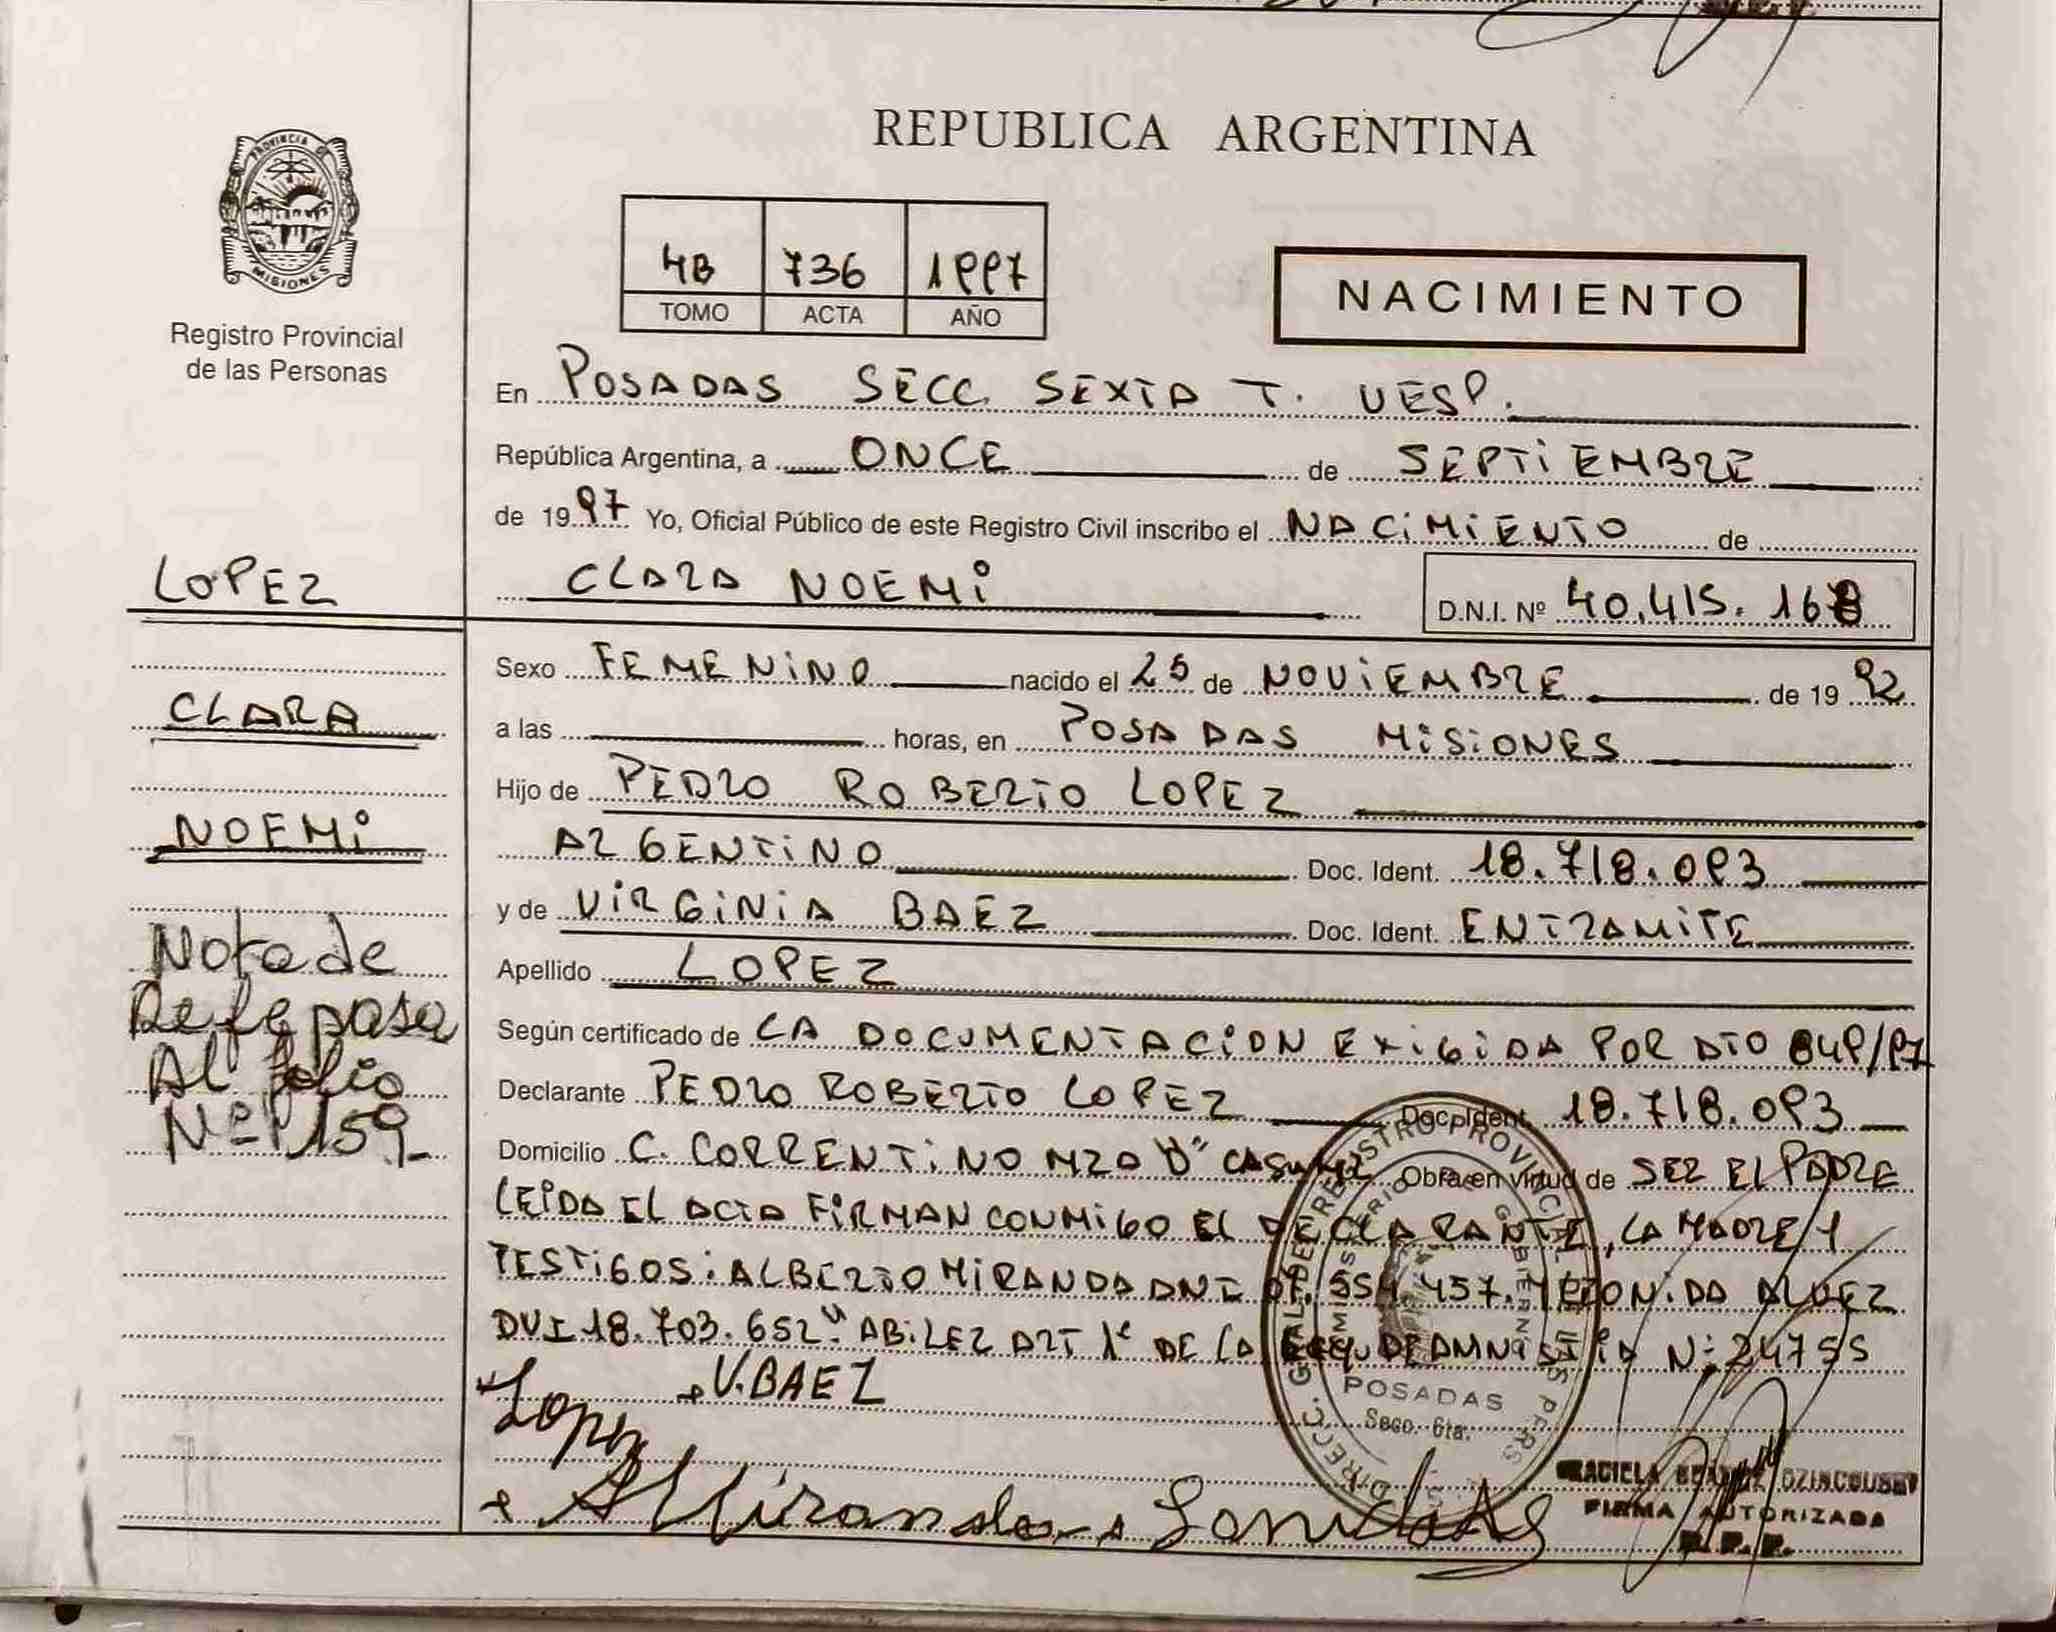 REPUBLICA ARGENTINA
PROVINCIA DE
MISIONES
Registro Provincial
de las Personas
4B 736 1997
TOMO ACTA AÑO
NACIMIENTO
En POSADAS SECC. SEXTA T. VESP.
República Argentina, a ONCE de SEPTIEMBRE
de 1997 Yo, Oficial Público de este Registro Civil inscribo el NACIMIENTO de
CLARA NOEMI D.N.I. Nº 40.415.168
Sexo FEMENINO nacido el 25 de NOVIEMBRE de 1992
a las horas, en POSADAS MISIONES
Hijo de PEDRO ROBERTO LOPEZ
ARGENTINO Doc. Ident. 18.718.093
y de VIRGINIA BAEZ Doc. Ident. ENTRAMITE
Apellido LOPEZ
Según certificado de LA DOCUMENTACION EXIGIDA POR DTO 849/97
Declarante PEDRO ROBERTO LOPEZ Doc. Ident. 18.718.093
Domicilio C. CORRENTINO MZA Obra en virtud de SER EL PADRE
LEIDA EL ACTA FIRMAN CONMIGO EL DECLARANTE, LA MADRE Y
TESTIGOS: ALBERTO MIRANDA DNI 554.457. ALVEZ
18.703.652 ART 1º DE LA Nº 24755
Lopez V.BAEZ
AMiranda
LOPEZ
CLARA
NOEMI
Nota de
Refe pasa
Al folio
Nº 159
DIRECC. GRAL DE REGISTRO PROVINCIAL
MINISTERIO DE GOBIERNO
POSADAS
Secc. 6ta.
GRACIELA
FIRMA AUTORIZADA
R.P.P.